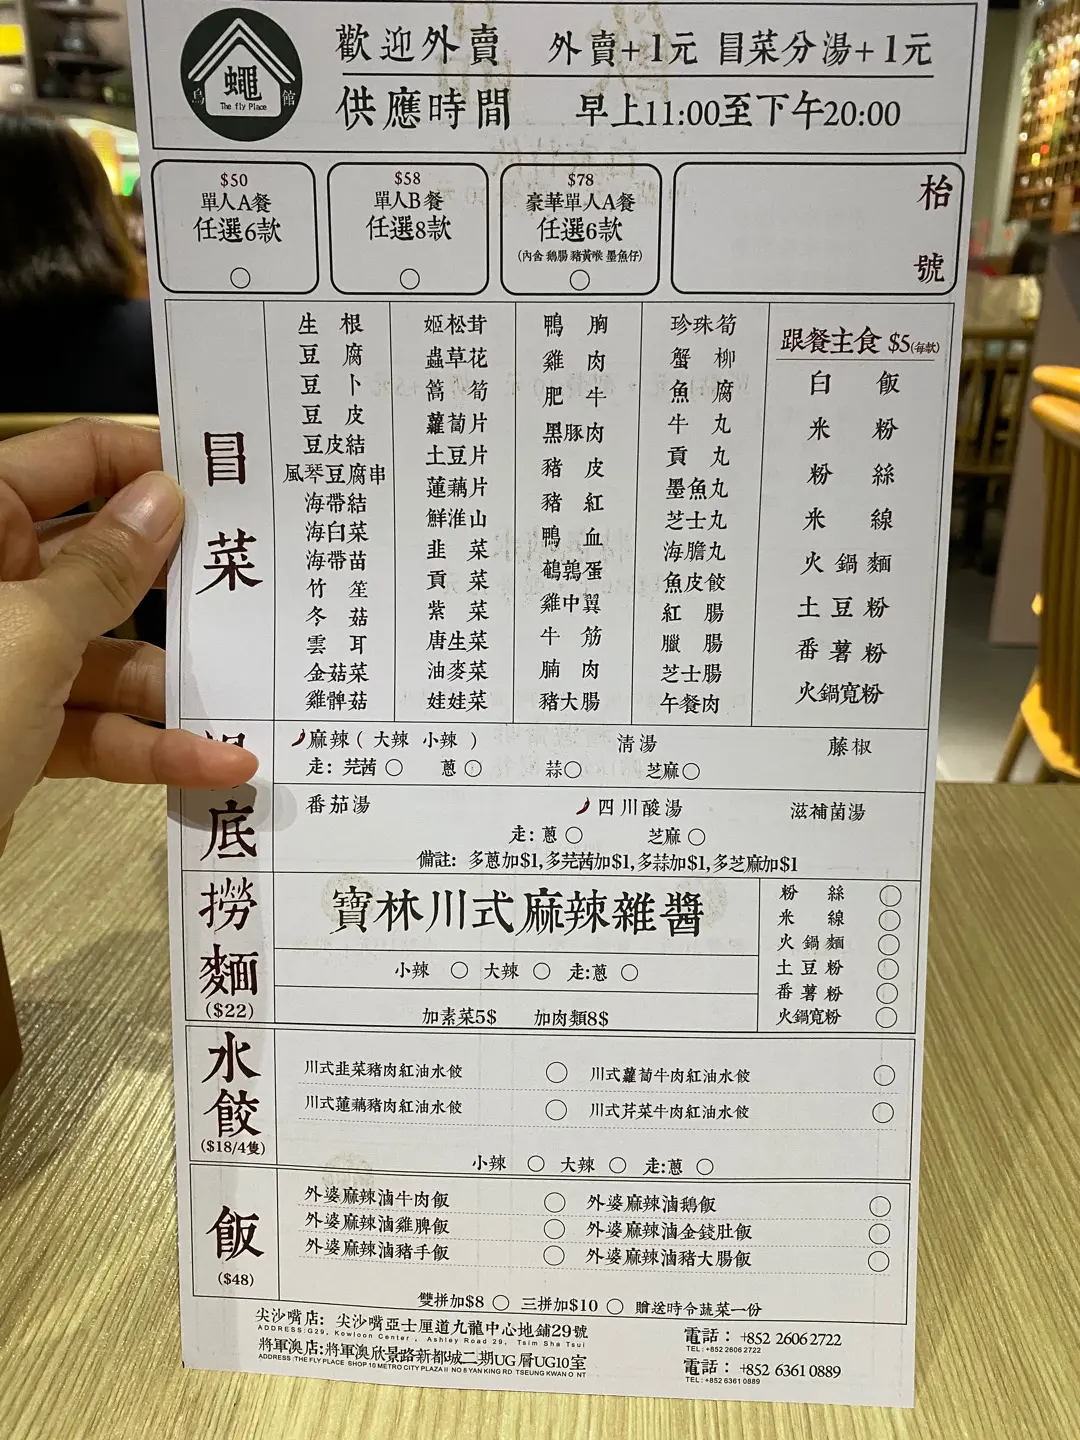 烏 蠅 館
The fly Place
歡迎外賣 外賣+1元 冒菜分湯+1元
供應時間 早上11:00至下午20:00
$50
單人A餐
任選6款
$58
單人B餐
任選8款
$78
豪華單人A餐
任選6款
(內含 鵝腸 豬黃喉 墨魚仔)
枱
號
冒菜
生根
豆腐
豆卜
豆皮
豆皮結
風琴豆腐串
海帶結
海白菜
海帶苗
竹笙
冬菇
雲耳
金菇菜
雞髀菇
姬松茸
蟲草花
萵筍
蘿蔔片
土豆片
蓮藕片
鮮淮山
韭菜
貢菜
紫菜
唐生菜
油麥菜
娃娃菜
鴨胸
雞肉
肥牛
黑豚肉
豬皮
豬紅
鴨血
鵪鶉蛋
雞中翼
牛筋
腩肉
豬大腸
珍珠筍
蟹柳
魚腐
牛丸
貢丸
墨魚丸
芝士丸
海膽丸
魚皮餃
紅腸
臘腸
芝士腸
午餐肉
跟餐主食 $5(每款)
白飯
米粉
粉絲
米線
火鍋麵
土豆粉
番薯粉
火鍋寬粉
底
麻辣(大辣 小辣) 清湯 藤椒
走: 芫茜 蔥 蒜 芝麻
番茄湯 四川酸湯 滋補菌湯
走: 蔥 芝麻
備註: 多蔥加$1,多芫茜加$1,多蒜加$1,多芝麻加$1
撈麵
($22)
寶林川式麻辣雜醬
小辣 大辣 走:蔥
加素菜5$ 加肉類8$
粉絲
米線
火鍋麵
土豆粉
番薯粉
火鍋寬粉
水餃
($18/4隻)
川式韭菜豬肉紅油水餃 川式蘿蔔牛肉紅油水餃
川式蓮藕豬肉紅油水餃 川式芹菜牛肉紅油水餃
小辣 大辣 走:蔥
飯
($48)
外婆麻辣滷牛肉飯 外婆麻辣滷鵝飯
外婆麻辣滷雞脾飯 外婆麻辣滷金錢肚飯
外婆麻辣滷豬手飯 外婆麻辣滷豬大腸飯
雙拼加$8 三拼加$10 贈送時令蔬菜一份
尖沙嘴店: 尖沙嘴亞士厘道九龍中心地鋪29號
ADDRESS:G29, Kowloon Center, Ashley Road 29, Tsim Sha Tsui
電話: +852 2606 2722
TEL: +852 2606 2722
將軍澳店:將軍澳欣景路新都城二期UG層UG10室
ADDRESS :THE FLY PLACE SHOP 10 METRO CITY PLAZA II NO 8 YAN KING RD TSEUNG KWAN O NT
電話: +852 6361 0889
TEL: +852 6361 0889